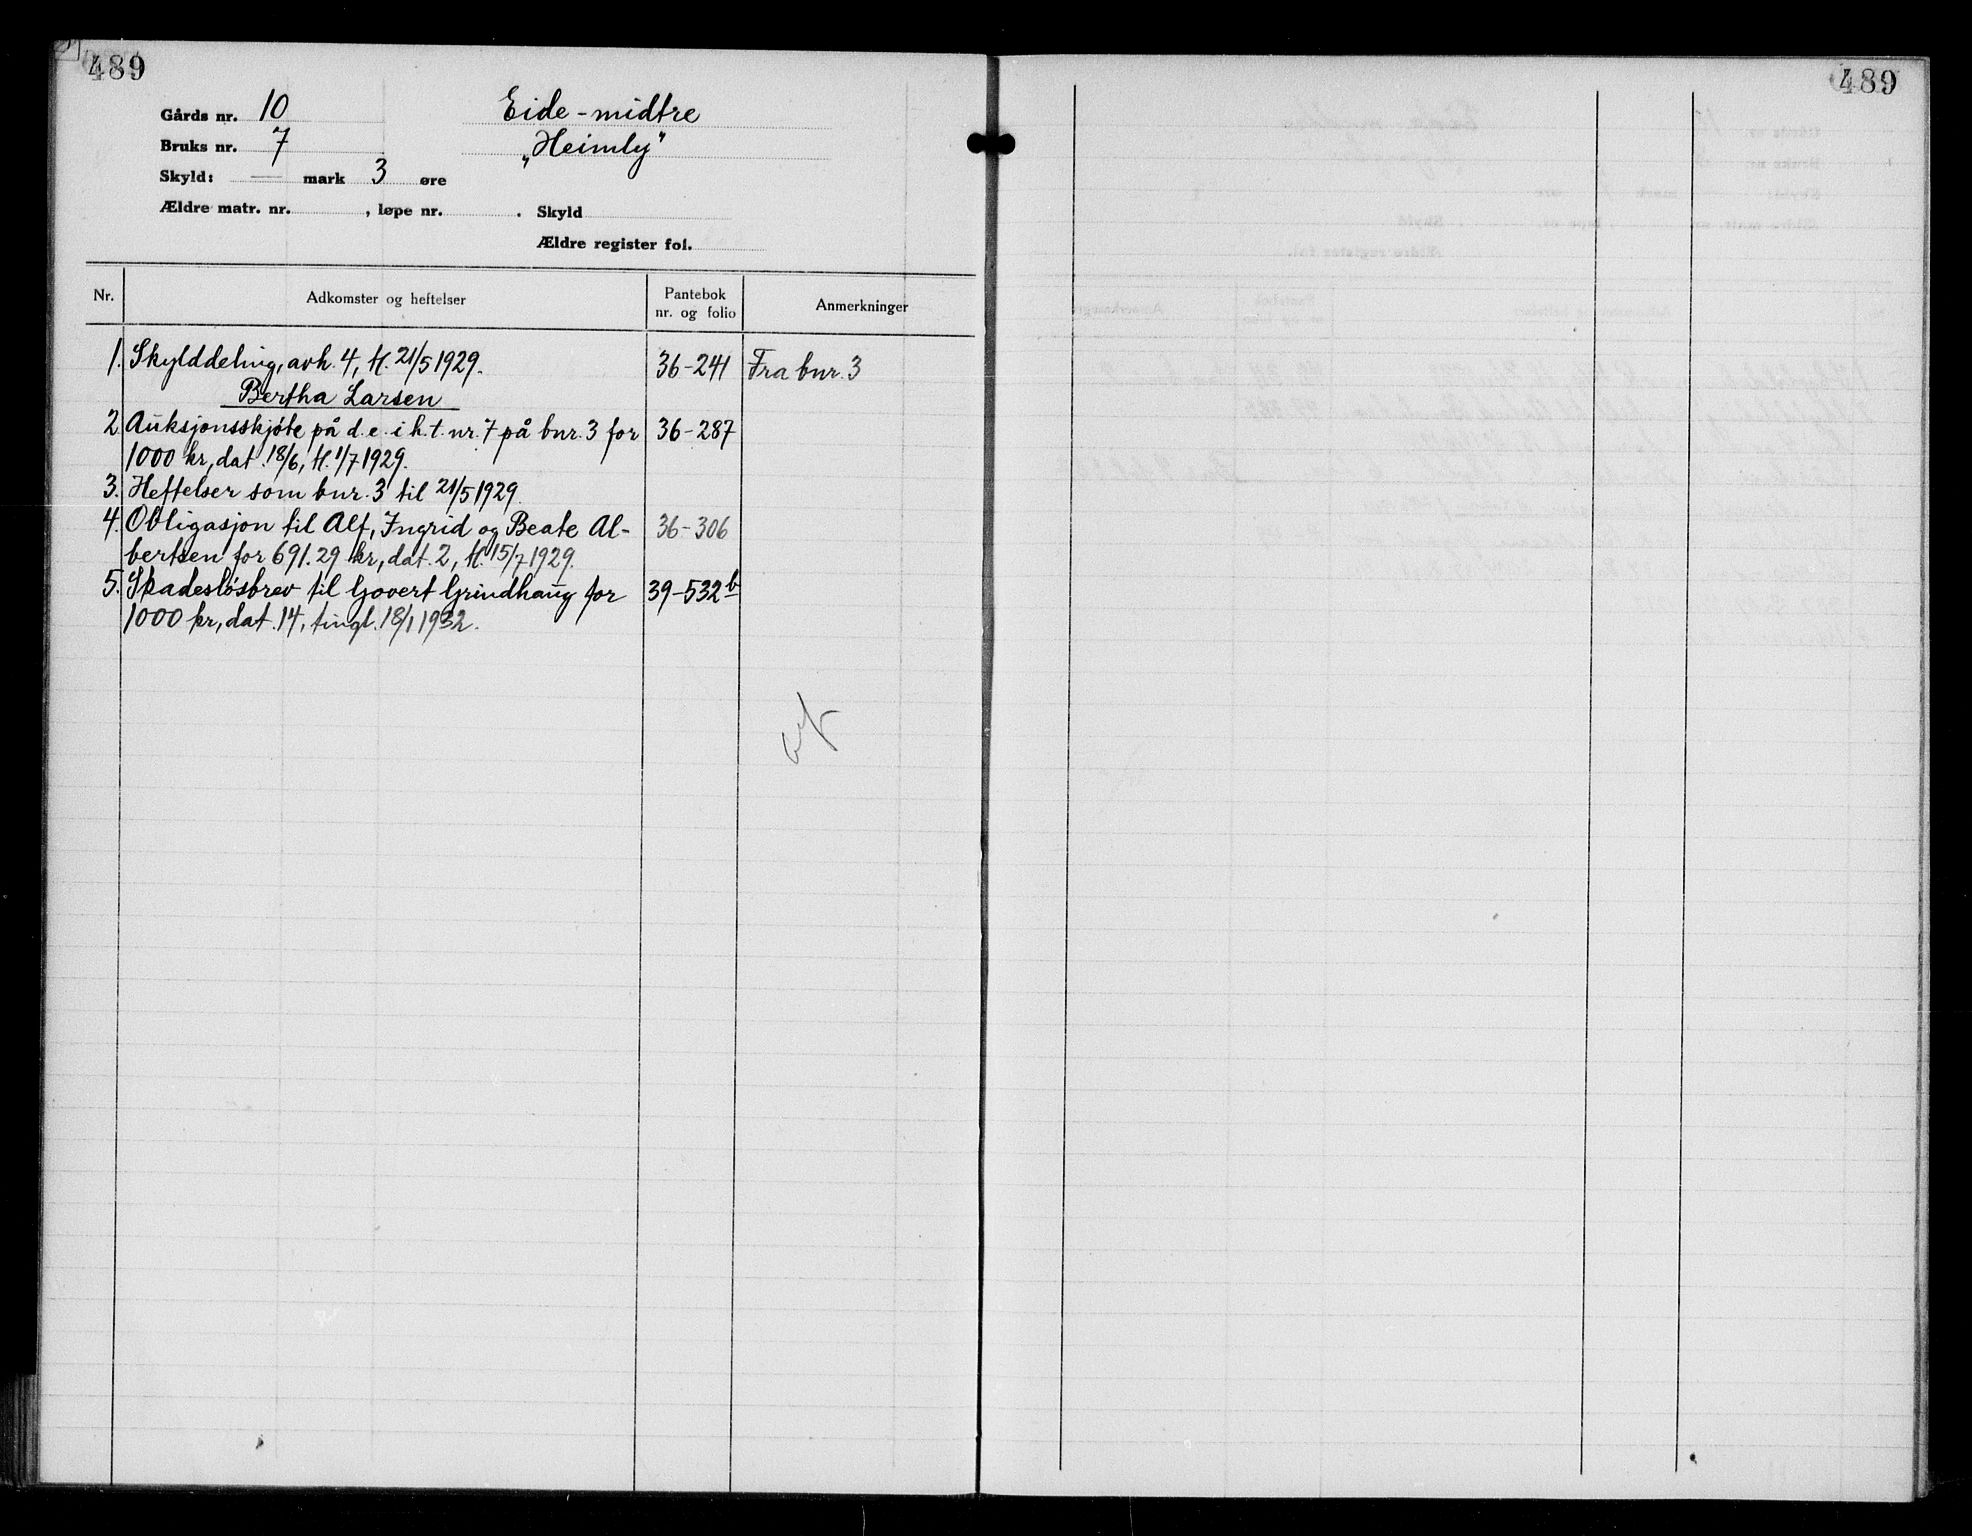 489
Gårds nr. 10 Eide-midtre
Bruks nr. 7 „Heimly"
Skyld: — mark 3 øre
Ældre matr. nr. , løpe nr. . Skyld
Ældre register fol.
Nr. Adkomster og heftelser Pantebok nr. og folio Anmerkninger
1. Skylddeling, avh. 4, tl. 21/5 1929. 36-241 Fra bnr. 3
Bertha Larsen
2 Auksjonsskjøte på d. e. i h. t. nr. 7 på bnr. 3 for 36-287
1000 kr, dat. 18/6, tl. 1/7 1929.
3. Heftelser som bnr. 3 til 21/5 1929.
4. Obligasjon til Alf, Ingrid og Beate Al- 36-306
bertsen for 691.29 kr, dat. 2, tl. 15/7 1929.
5. Skadesløsbrev til Govert Grindhaug for 39-532 b
1000 kr, dat. 14, tingl. 18/1 1932.
489